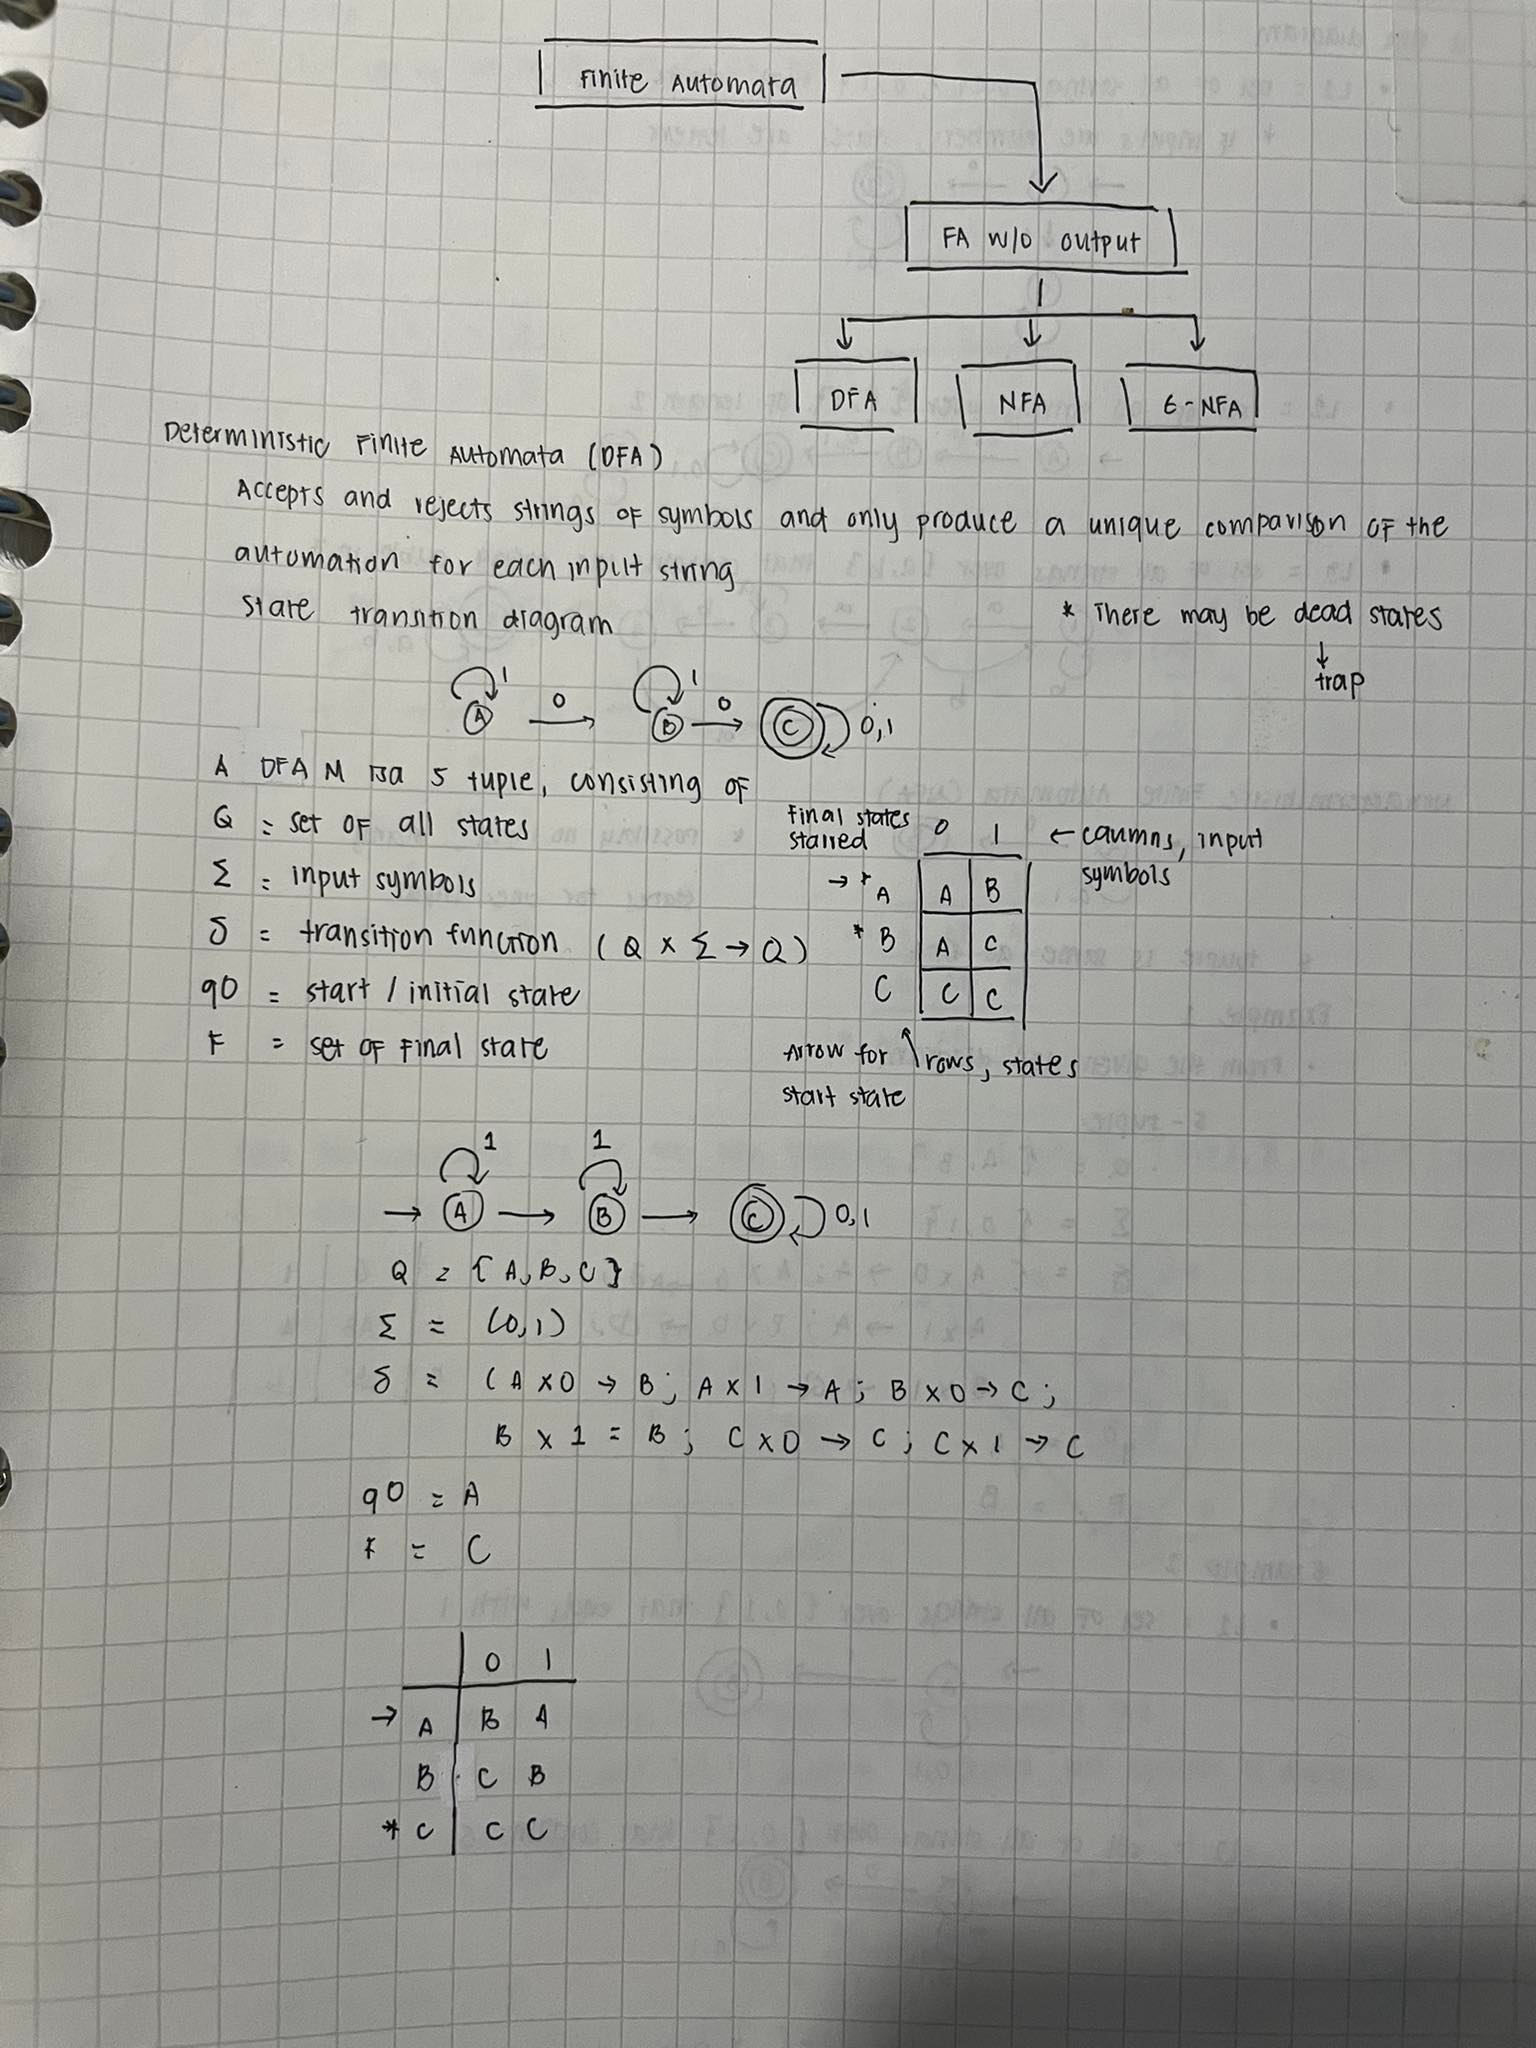 Finite Automata
FA w/o output
DFA
NFA
ε-NFA
Deterministic Finite Automata (DFA)
Accepts and rejects strings of symbols and only produce a unique comparison of the
automation for each input string
state transition diagram
* There may be dead states
↓
trap
1 1
A 0 B 0 C 0,1
A DFA M is a 5 tuple, consisting of
Q = set of all states
Σ = input symbols
δ = transition function (Q × Σ → Q)
q0 = start / initial state
F = set of final state
Final states
starred
0 1 ← caumns, input
symbols
→ * A A B
* B A C
C C C
Arrow for
start state
rows, states
1 1
→ A → B → C 0,1
Q = { A, B, C }
Σ = (0,1)
δ = ( A × 0 → B ; A × 1 → A ; B × 0 → C ;
B × 1 = B ; C × 0 → C ; C × 1 → C
q0 = A
F = C
0 1
→ A B A
B C B
* C C C